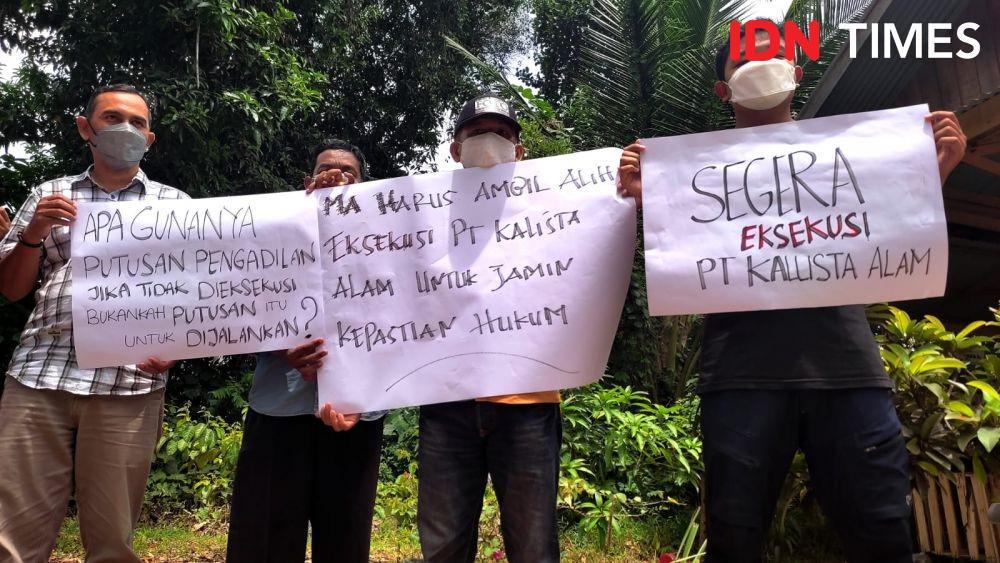 IDN TIMES
APA GUNANYA
PUTUSAN PENGADILAN
JIKA TIDAK DIEKSEKUSI
BUKANKAH PUTUSAN ITU
UNTUK DIJALANKAN?
MA HARUS AMBIL ALIH
EKSEKUSI PT KALISTA
ALAM UNTUK JAMIN
KEPASTIAN HUKUM
SEGERA
EKSEKUSI
PT KALLISTA ALAM